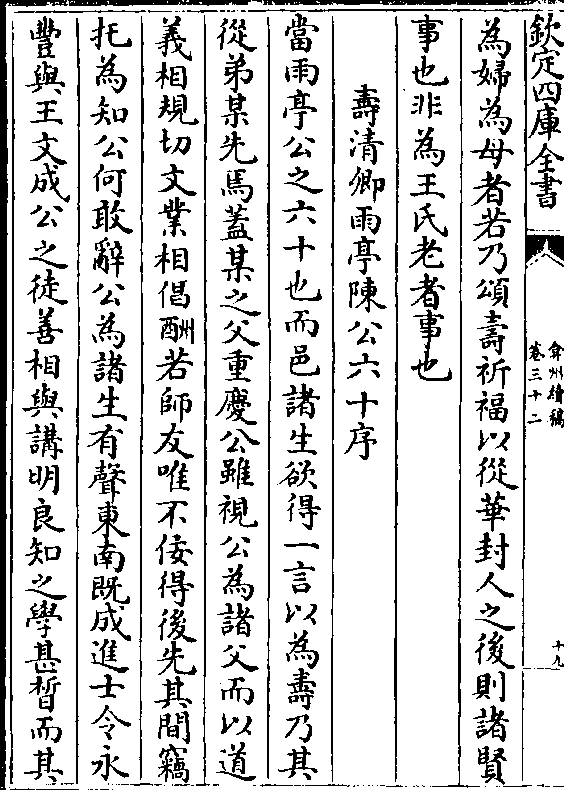 欽定四庫全書
弇州續稿
卷三十二
十九
為婦為母者若乃頌壽祈福以從華封人之後則諸賢
事也非為王氏老者事也
壽清卿雨亭陳公六十序
當雨亭公之六十也而邑諸生欲得一言以為壽乃其
從弟某先焉蓋某之父重慶公雖視公為諸父而以道
義相規切文業相倡酬若師友唯不佞得後先其間竊
托為知公何敢辭公為諸生有聲東南既成進士令永
豐與王文成公之徒善相與講明良知之學甚晳而其